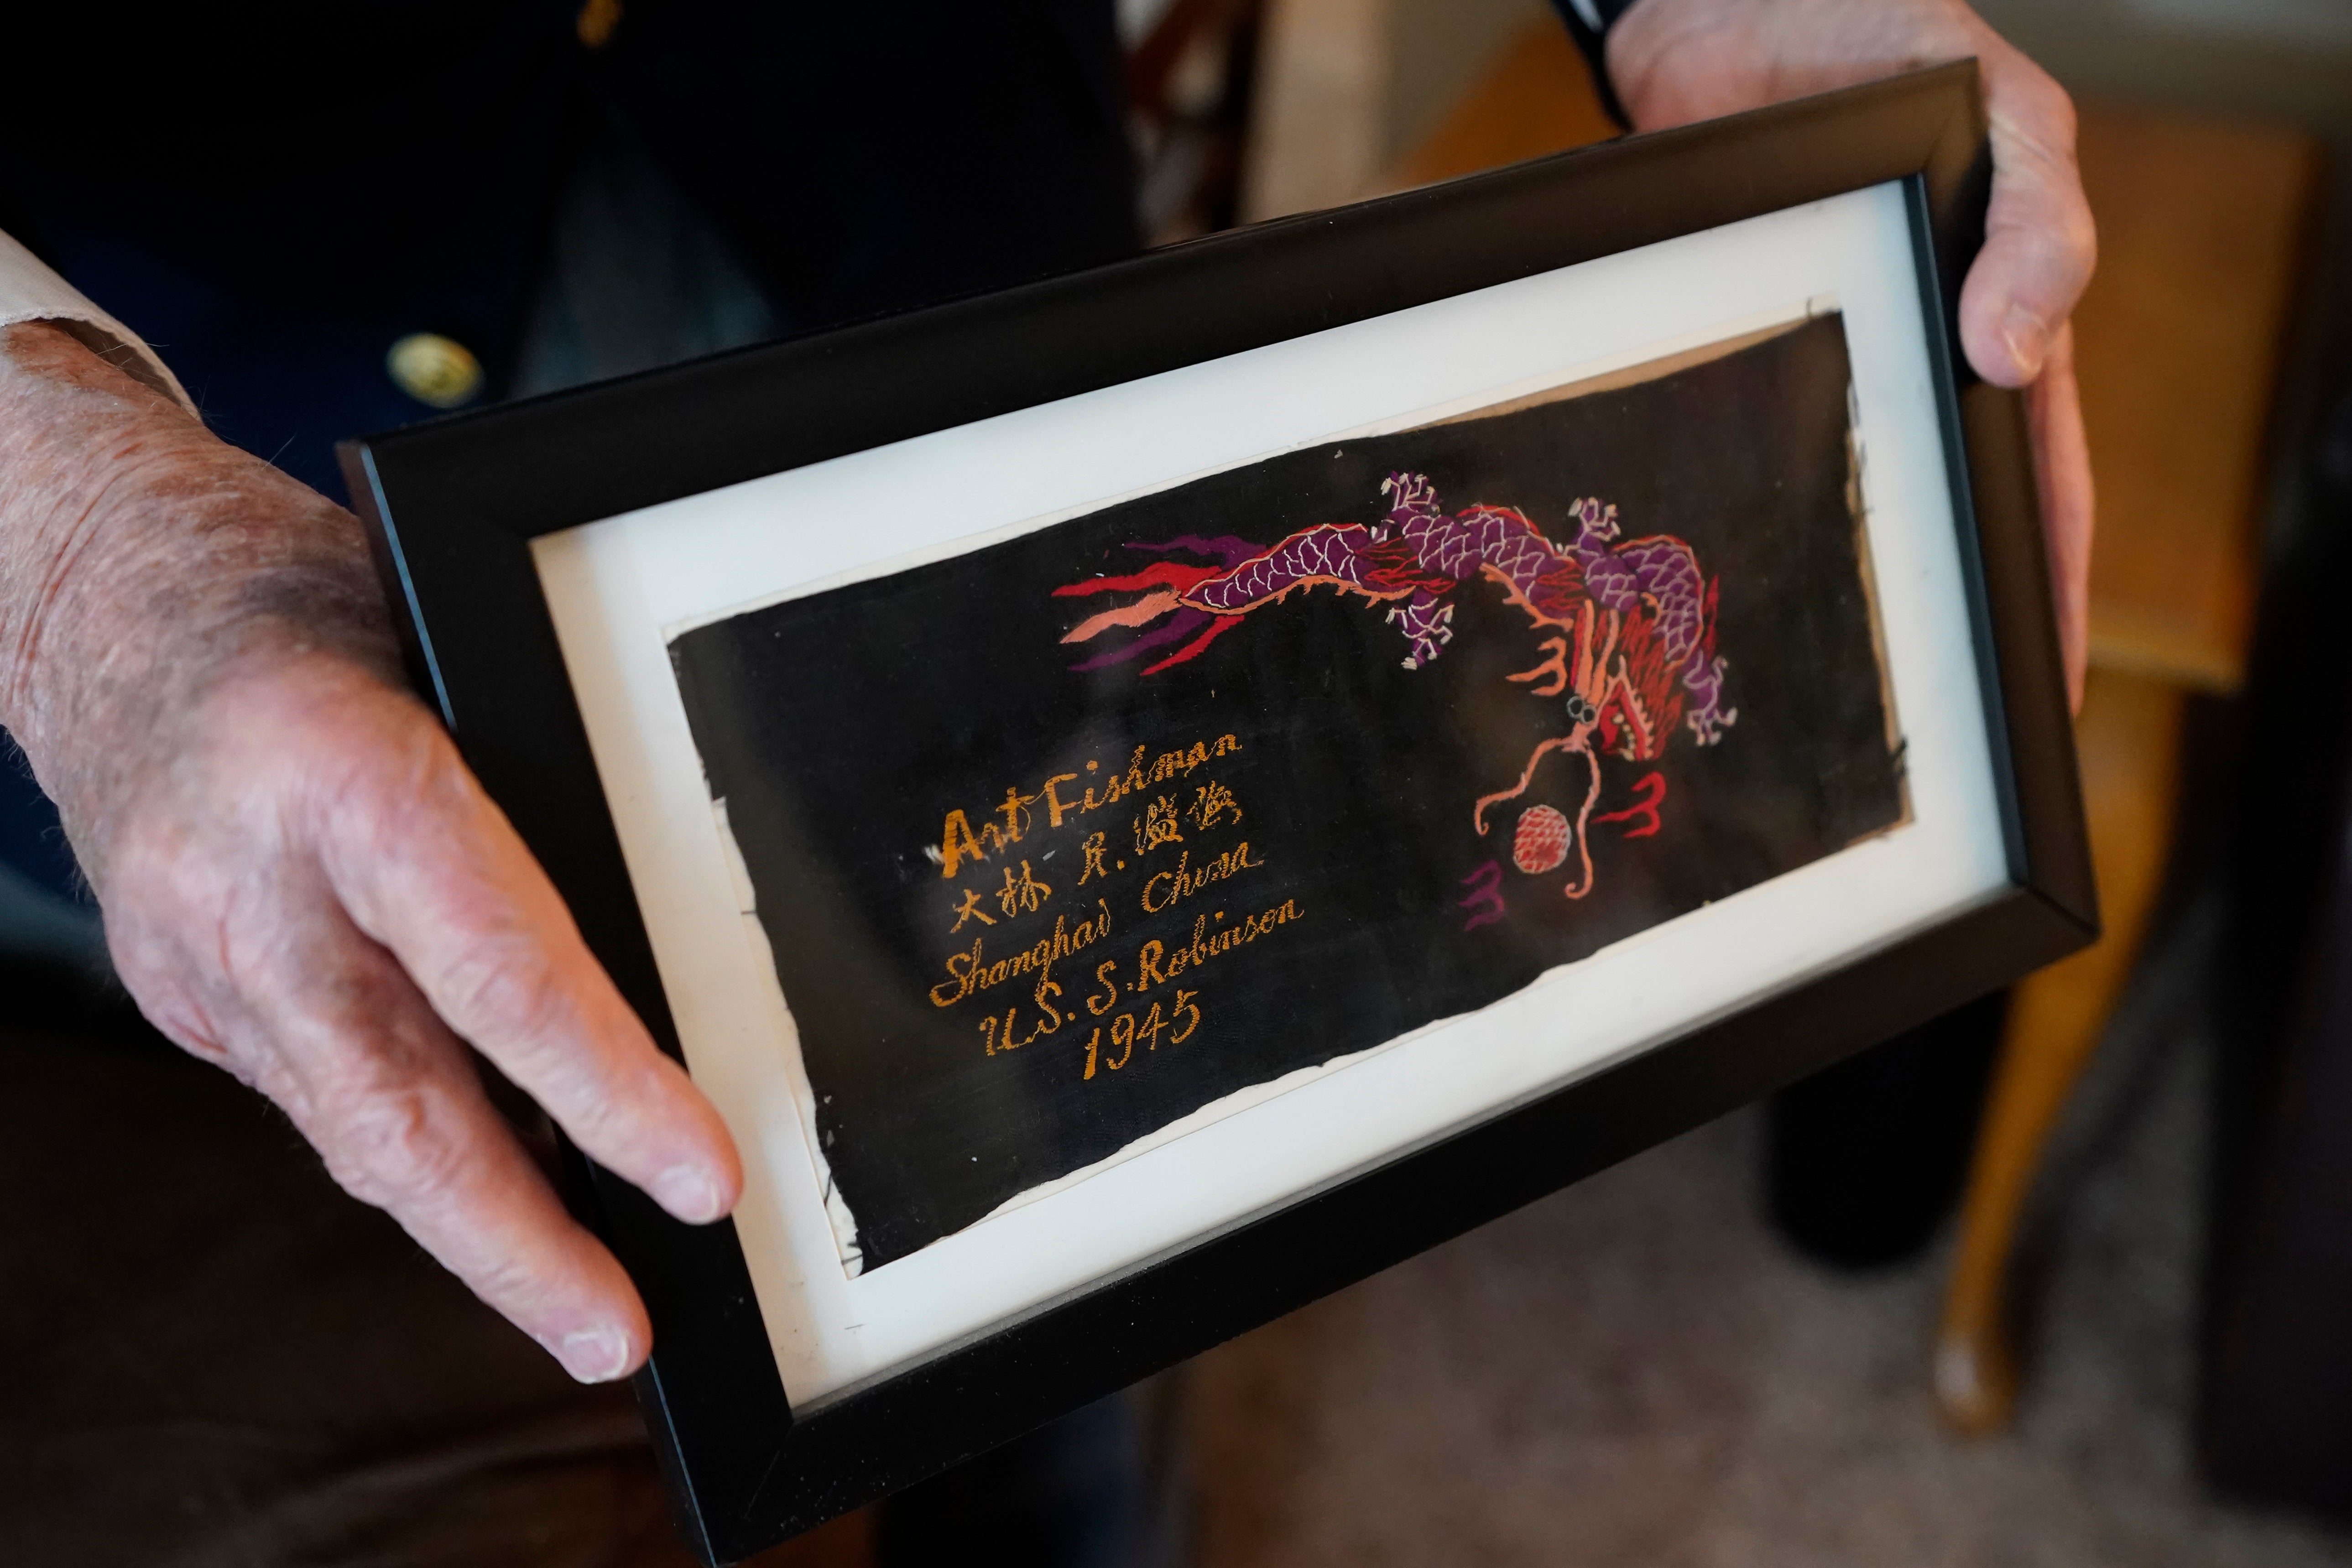 Art Fishman
大林
Shanghai China
U.S.S.Robinson
1945